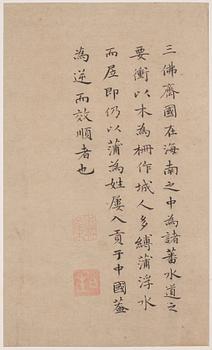 三佛齊國在海南之中為諸蕃水道之
要衝以木為柵作城人多縛蒲浮水
而居即仍以蒲為姓屢入貢于中國蓋
為逆而效順者也